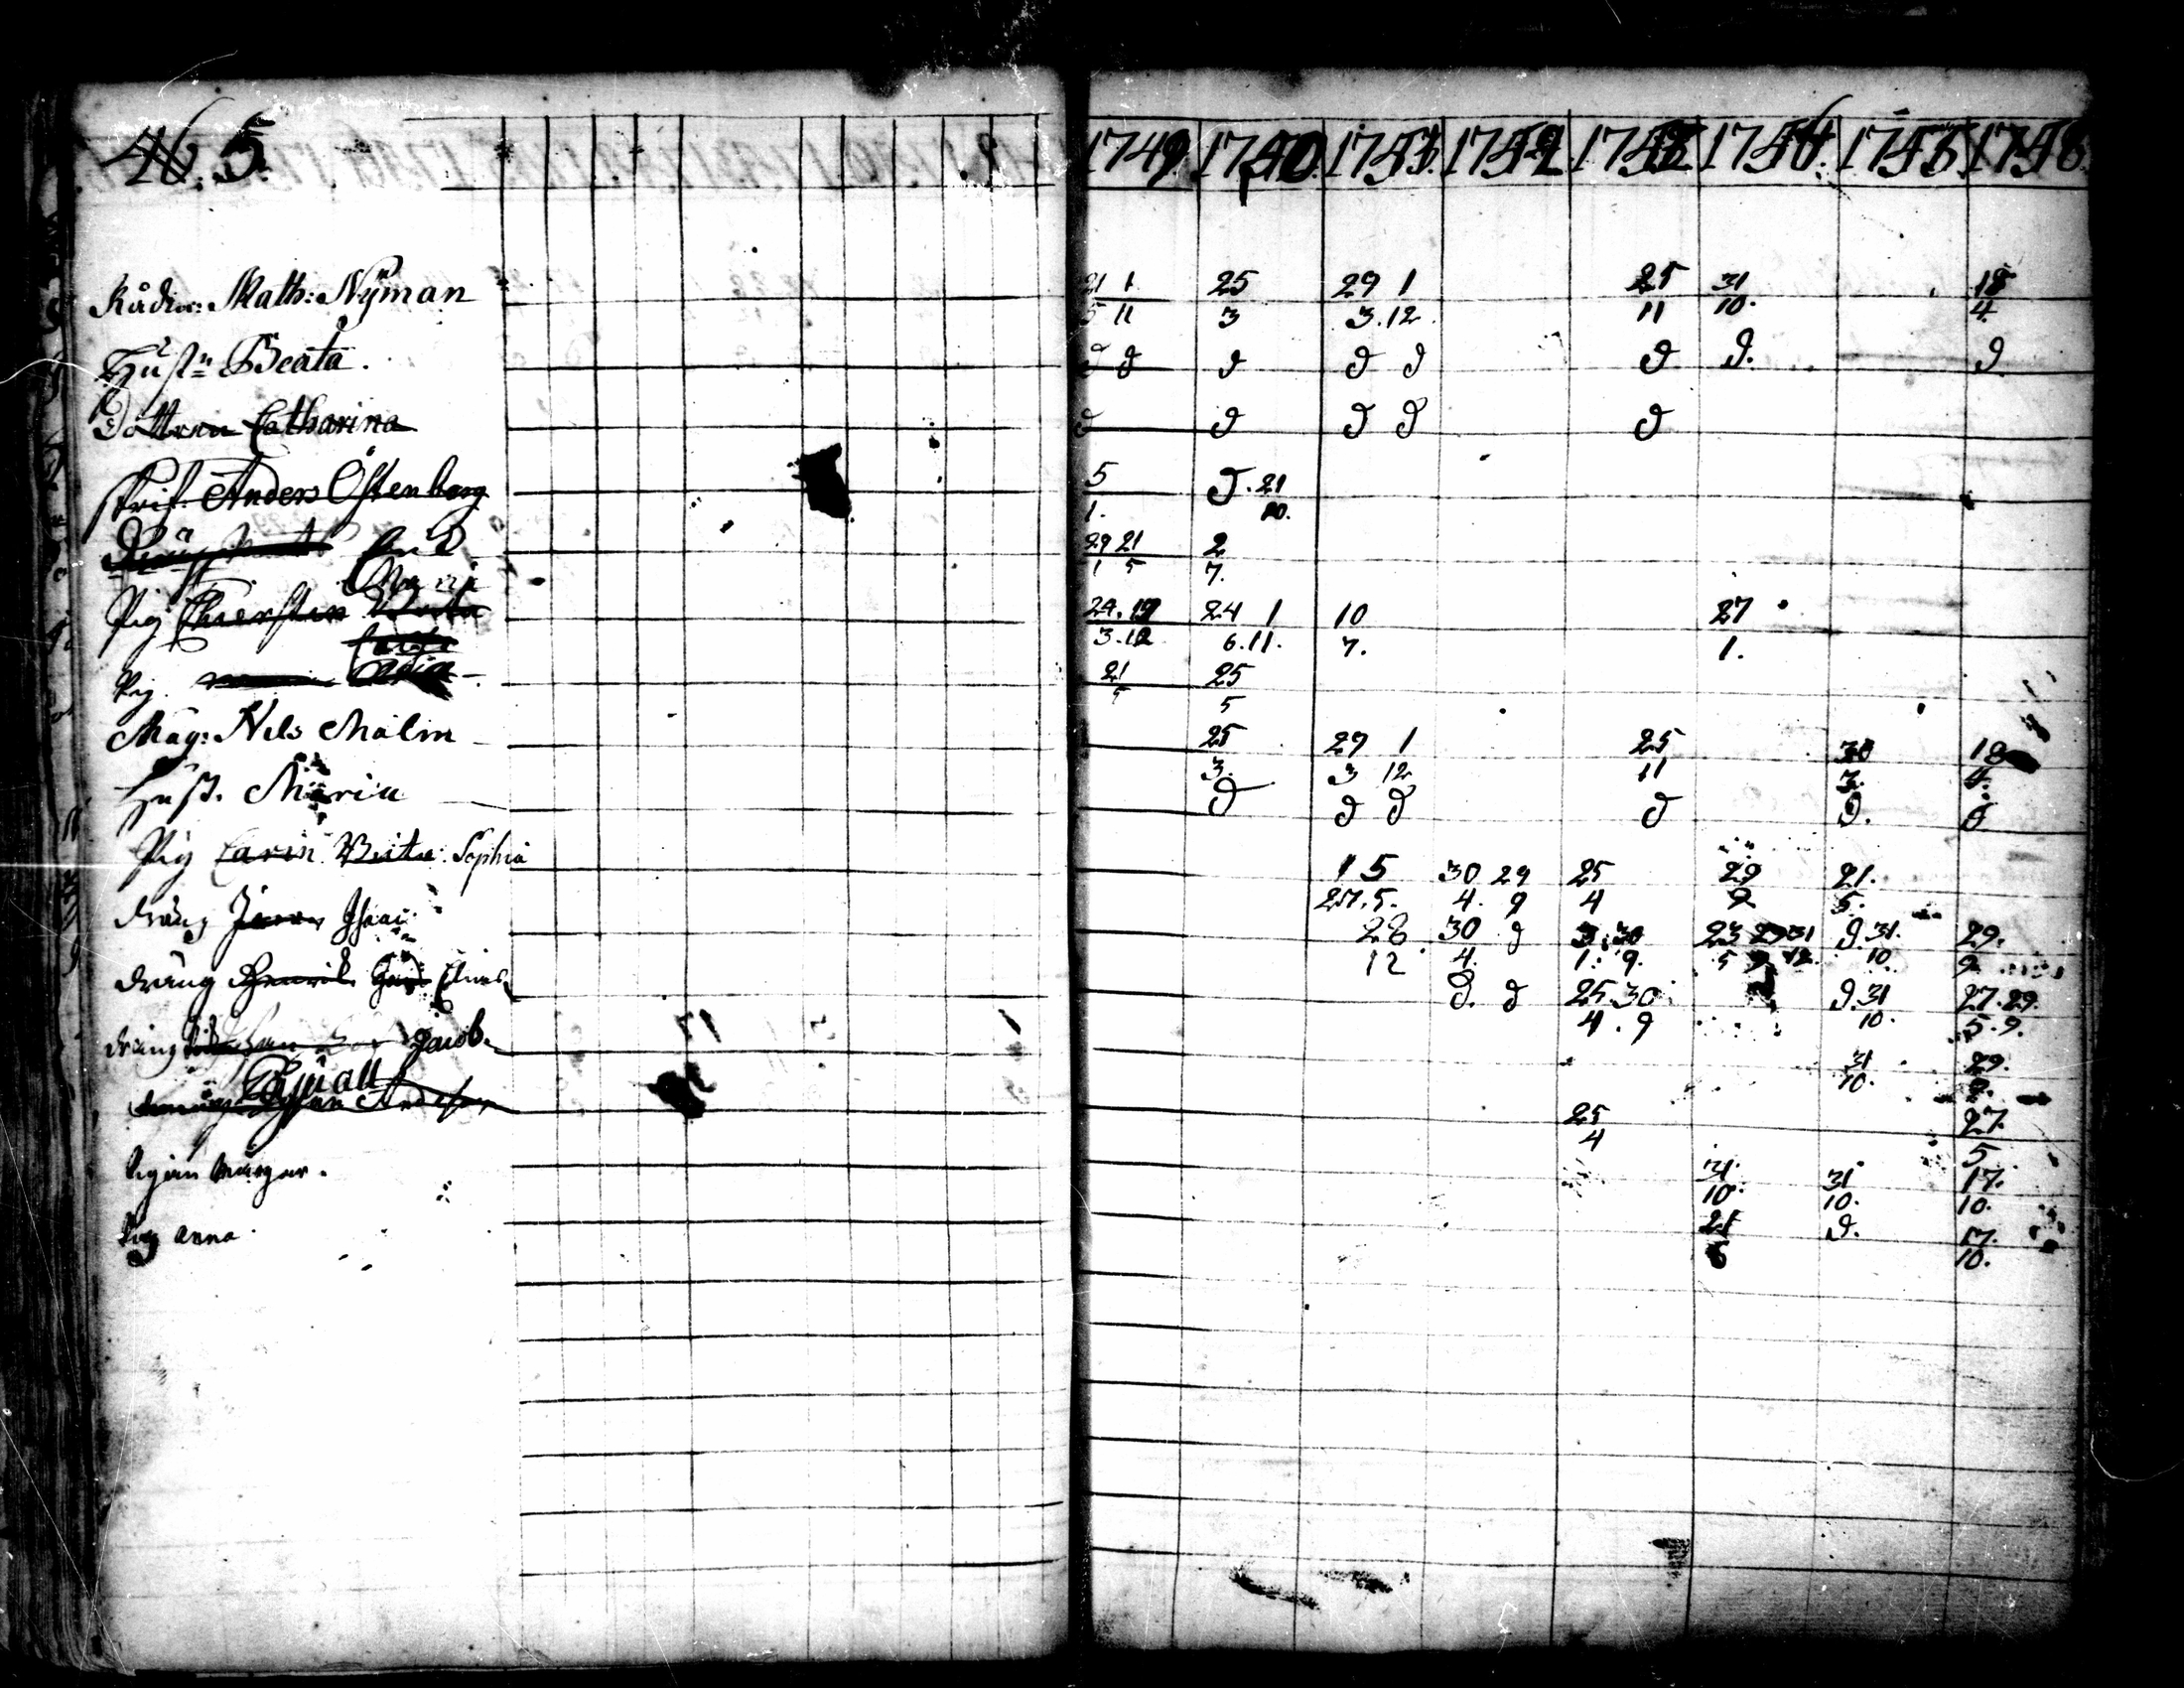 46. 5.
1749. 1750. 1751. 1752 1753 1754. 1755. 1756.
Rådm: Math: Nÿman 21 1 25 29 1 25 31 18
5 11 3 3.12. 11 10. 4.
Hustn Beata. d d d d d d d. d
Dottren Catharina d d d d d
skrif. Anders Östenberg 5 d. 21
1. 10.
29 21 2
1 5 7.
Maria
Pig Chiersten Brita 24. 19 24 1 10 27
3.12 6.11. 7. 1.
Pig. 21 25
5 5
Mag: Nils Malm 25 29 1 25 30 18
3. 3 12 11 3. 4.
Hust. Maria d d d d d. d
Pig Carin Brita Sophia 15 30 29 25 29 21.
27.5. 4. 9 4 9 5.
dräng Isaac 28 30 d 3. 30 23 29 31 d. 31. 29.
12 4. 1. 9. 5 9 12. 10. 9
dräng Henrik d. d 25. 30 d. 31 27. 29.
4. 9 10. 5. 9.
dräng Jacob 31 29.
10. 9.
Johan Anderson 25 27.
4 5
Pigan Margar. 31. 31 17.
10. 10. 10.
Pig Anna 21 d. 17.
6 10.